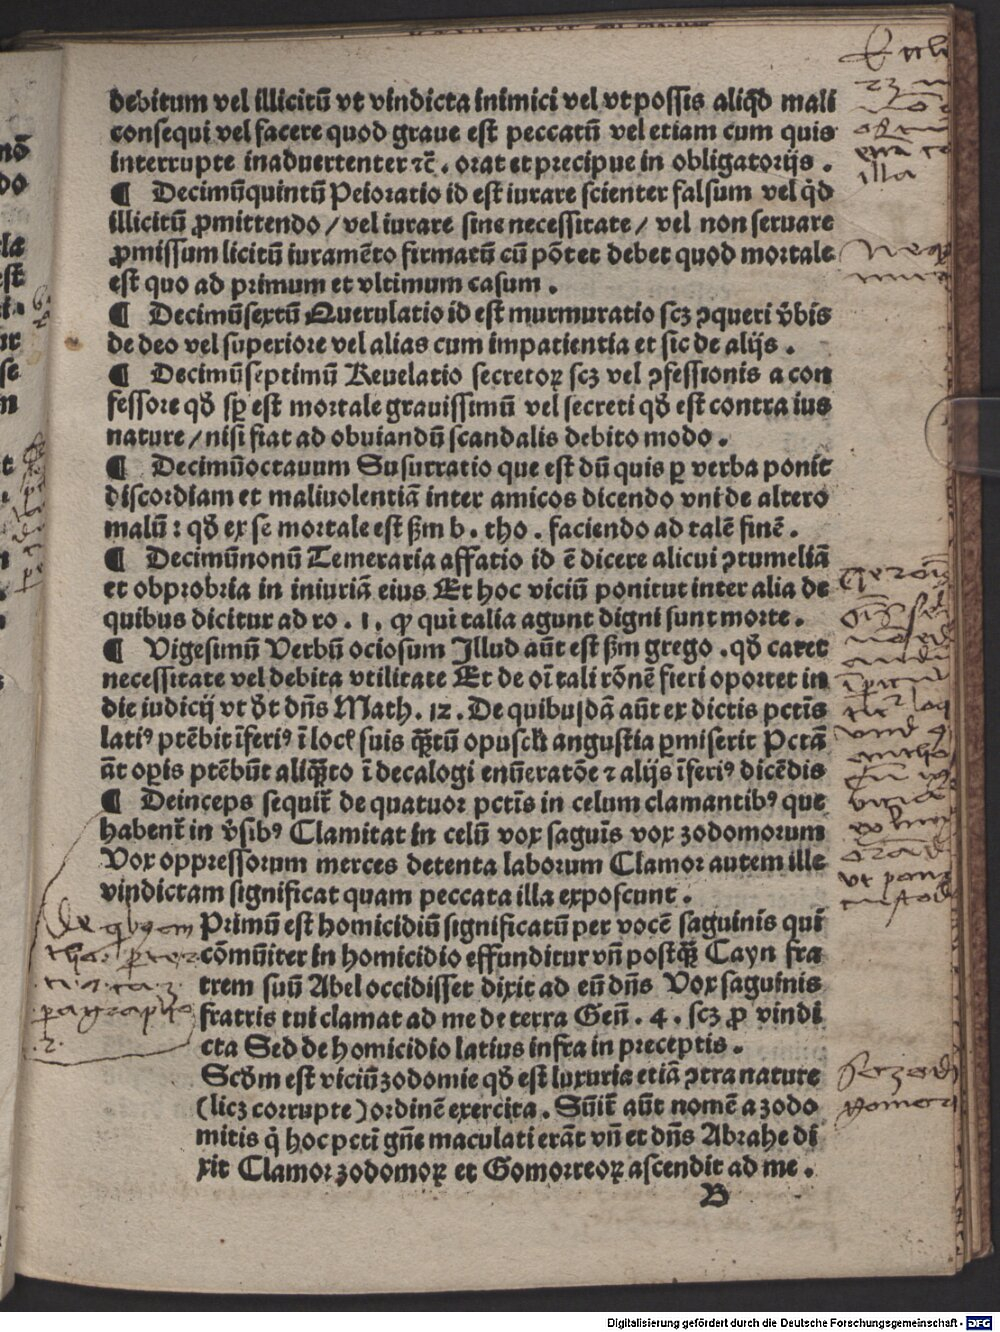 debitum vel illicitū vt vindicta inimici vel vt possis aliqd̄ mali
consequi vel facere quod graue est peccatū vel etiam cum quis
interrupte inaduertenter ⁊c̄. orat et precipue in obligatorijs.
¶ Decimūquintū Peioratio id est iurare scienter falsum vel qd̄
illicitū ꝓmittendo / vel iurare sine necessitate / vel non seruare
ꝓmissum licitū iuramēto firmatū cū pōt et debet quod mortale
est quo ad primum et vltimum casum.
¶ Decimūsextū Querulatio id est murmuratio scꝫ ꝯqueri v̄bis
de deo vel superiore vel alias cum impatientia et sic de alijs.
¶ Decimūseptimū Reuelatio secretoꝝ scꝫ vel ꝯfessionis a con
fessore qd̄ sꝑ est mortale grauissimū vel secreti qd̄ est contra ius
nature / nisi fiat ad obuiandū scandalis debito modo.
¶ Decimūoctauum Susurratio que est dū quis ꝑ verba ponit
discordiam et maliuolentiā inter amicos dicendo vni de altero
malū: qd̄ ex se mortale est ẜm b. tho. faciendo ad talē finē.
¶ Decimūnonū Temeraria affatio id ē dicere alicui ꝯtumeliā
et obprobria in iniuriā eius Et hoc viciū ponitur inter alia de
quibus dicitur ad ro. 1. ꝙ qui talia agunt digni sunt morte.
¶ Vigesimū Verbū ociosum Illud aūt est ẜm grego. qd̄ caret
necessitate vel debita vtilitate Et de oī tali rōne fieri oportet in
die iudicij vt d̄t dn̄s Math. 12. De quibusdā aūt ex dictis pctīs
latiꝰ ptēbit īferiꝰ ī locꝭ suis qͣ̄tū opusculi angustia ꝑmiserit Pctā
āt oꝑis ptēbūt aliqͣ̄to ī decalogi enūeratōe ⁊ alijs īferiꝰ dicēdis
¶ Deinceps sequit̄ de quatuor pctīs in celum clamantibꝰ que
habent̄ in v̄sibꝰ Clamitat in celū vox saguīs vox zodomorum
Vox oppressorum merces detenta laborum Clamor autem ille
vindictam significat quam peccata illa exposcunt.
De qͥbus
Primū est homicidiū significatū per vocē saguinis qui
cōmūiter in homicidio effunditur vn̄ postqͣ̄ Cayn fra
trem suū Abel occidisset dixit ad eū dn̄s Vox saguinis
paragrapho
fratris tui clamat ad me de terra Gen̄. 4. scꝫ ꝓ vindi
.2.
cta Sed de homicidio latius infra in preceptis.
Scd̄m est viciū zodomie qd̄ est luxuria etiā ꝯtra nature
(licꝫ corrupte) ordinē exercita. Sūit̄ aūt nomē a zodo
mitis q̇ hoc pctī gn̄e maculati erāt vn̄ et dn̄s Abrahe di
xit Clamor zodomoꝝ et Gomorreoꝝ ascendit ad me.
B
illa
Digitalisierung gefördert durch die Deutsche Forschungsgemeinschaft - DFG